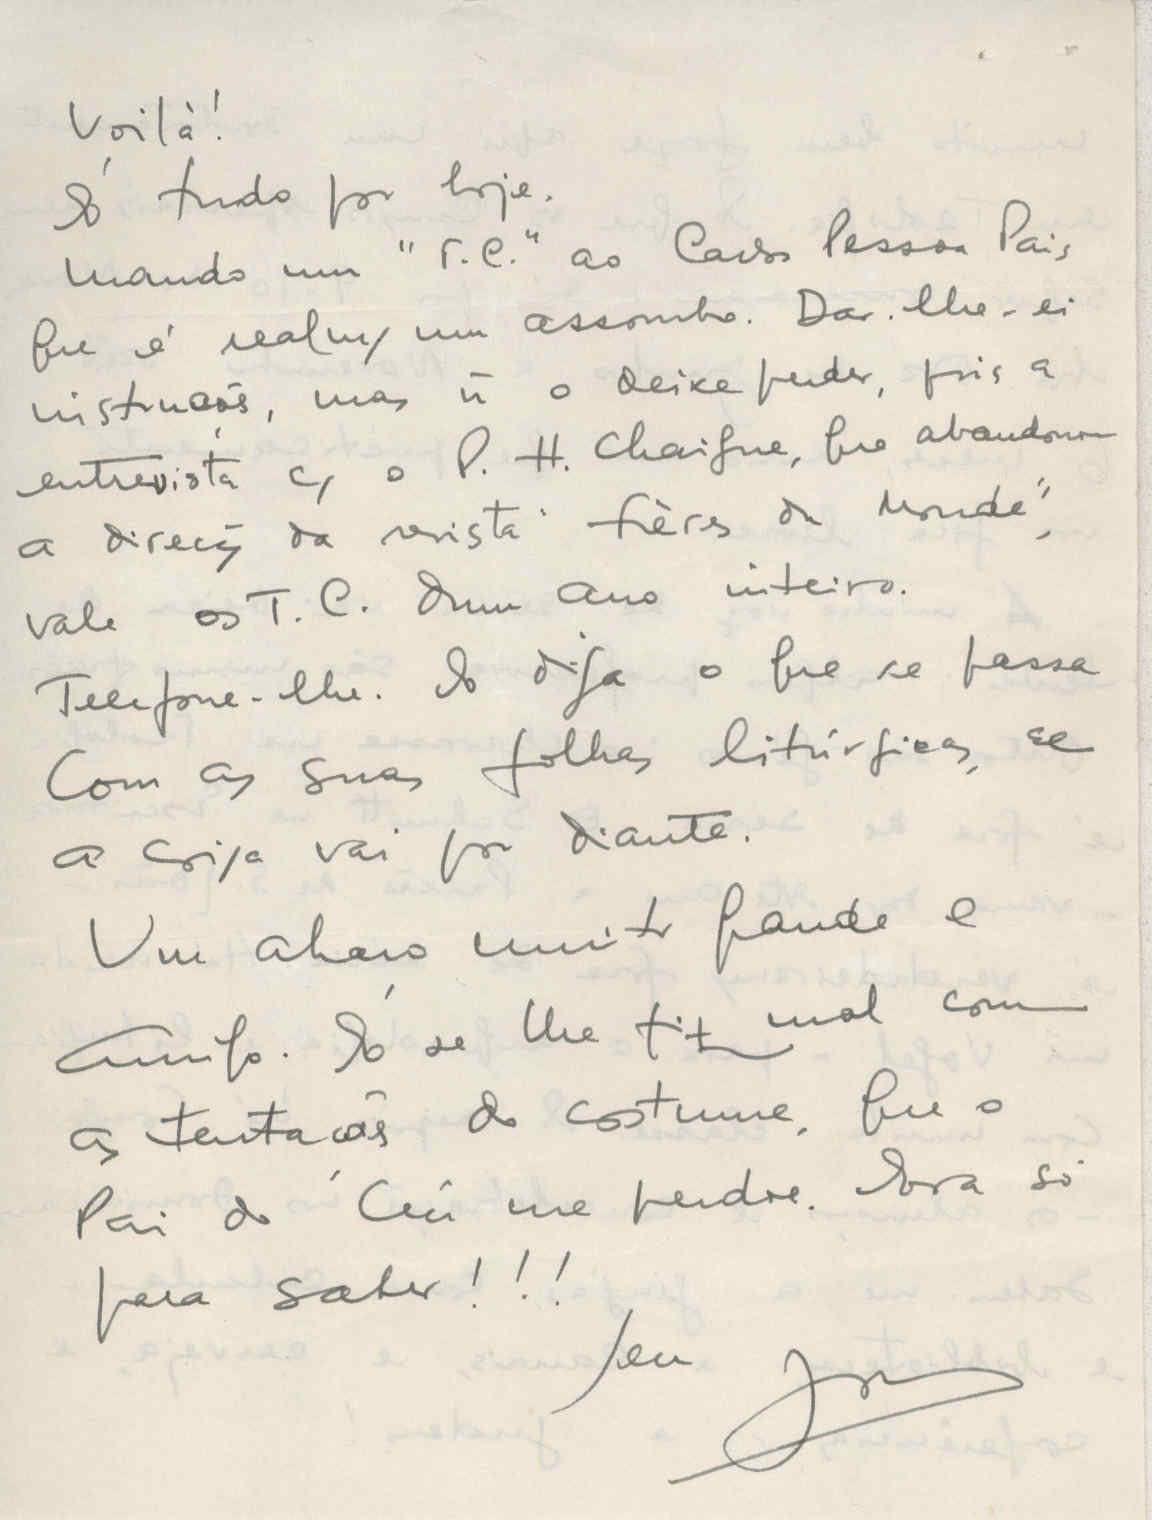 Voilà!
Só tudo por hoje.
Mando um "T.C." ao Carlos Pessoa Pais
que é realm/ um assombro. Dar-lhe-ei
instruções, mas ñ o deixe perder, pois a
entrevista c/ o P. H. Chaigne, que abandonou
a direcç da revista "Frères du Monde",
vale os T.C. dum ano inteiro.
Telefone-lhe. E diga o que se passa
com as suas folhas litúrgicas, se
a coisa vai por diante.
Um abraço muito grande e
amigo. Só se lhe fiz mal com
as tentações do costume, que o
Pai do Céu me perdoe. Isso só
para saber!!!
Seu